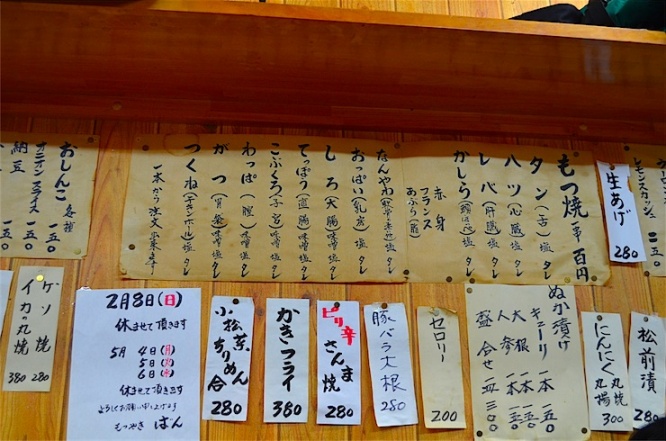 レモンスカッシュ
二五〇
生あげ
280
もつ焼 一本 百円
タン(舌)塩 タレ
ハツ(心臓)塩 タレ
レバ(肝臓)塩 タレ
かしら
赤身
フランス
あぶら
なんやわ
おっぱい(乳房)塩 タレ
しろ(大腸)味噌 塩 タレ
てっぽう(直腸)味噌 塩 タレ
こぶくろ(子宮)味噌 塩 タレ
わっぱ(膣)味噌 塩 タレ
がつ(胃袋)味噌 塩 タレ
つくね(チキンボール)塩 タレ
一本から注文出来ます!
おしんこ 各種 一五〇
オニオンスライス 一五〇
納豆 一五〇
松前漬
300
にんにく 丸焼 丸揚
300
ぬか漬け
キューリ 一本 一五〇
大根 一本 一五〇
人参 一本 一五〇
盛合せ 三〇〇
セロリー
200
豚バラ大根
280
ピリ辛さんま焼
280
かきフライ
380
小松菜ちりめん合
280
2月8日(日)
休ませて頂きます
5月 4日(月)
5日(火)
6日(水)
休ませて頂きます
よろしくお願い申し上げます
もつやき ばん
ゲソ焼 280
イカ丸焼 380